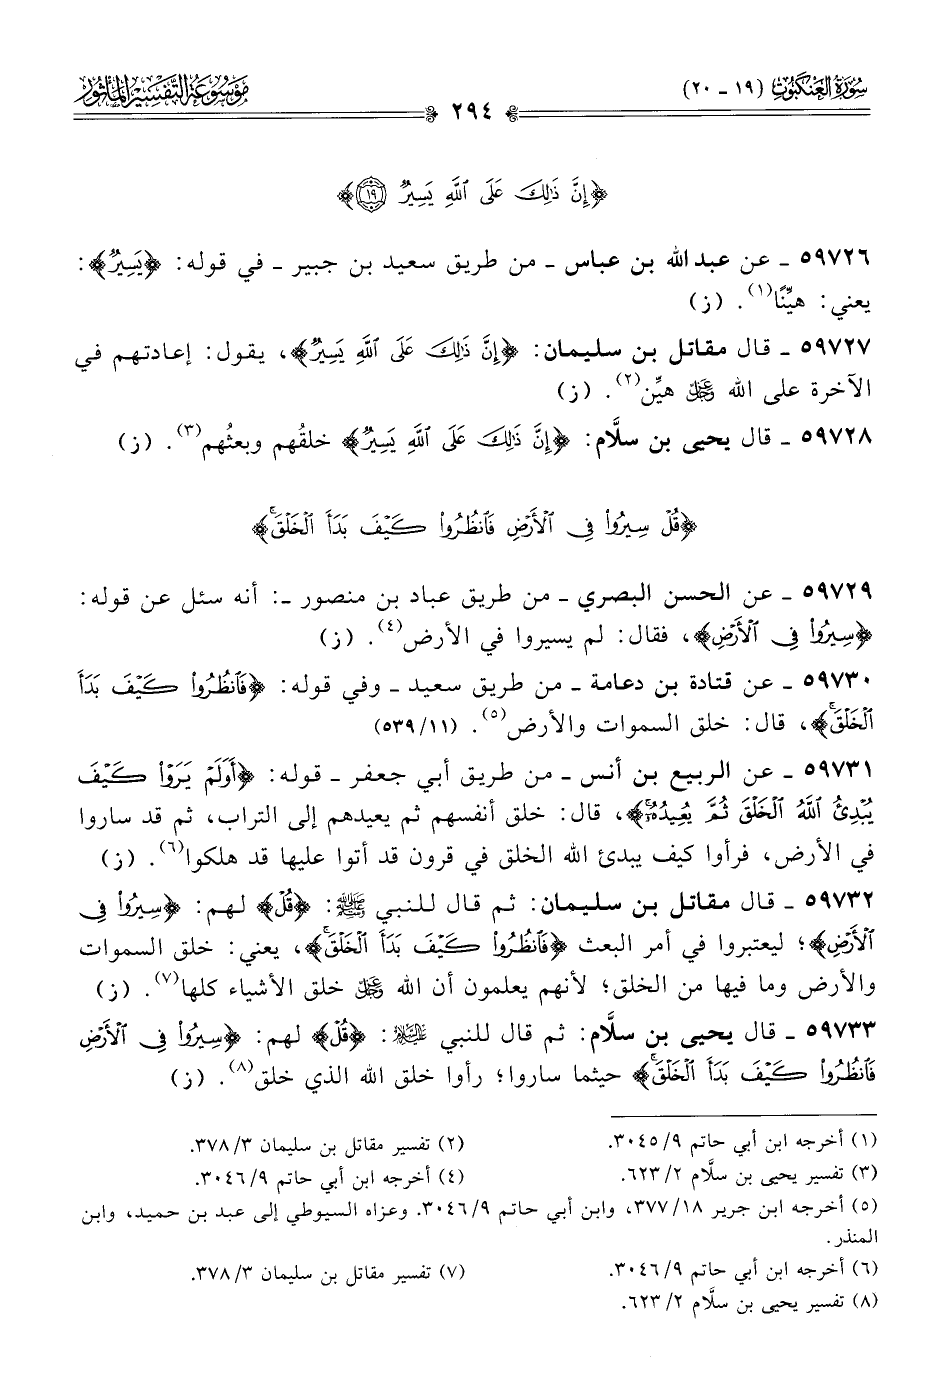 سُورَةُ العَنْكَبُوتِ (١٩ - ٢٠)
٢٩٤
مَوْسُوعَةُ التَّفْسِيرِ المَأْثُورِ
﴿إِنَّ ذَٰلِكَ عَلَى ٱللَّهِ يَسِيرٌ ١٩﴾
٥٩٧٢٦ - عن عبد الله بن عباس - من طريق سعيد بن جبير - في قوله: ﴿يَسِيرٌ﴾:
يعني: هيِّنًا(١). (ز)
٥٩٧٢٧ - قال مقاتل بن سليمان: ﴿إِنَّ ذَٰلِكَ عَلَى ٱللَّهِ يَسِيرٌ﴾، يقول: إعادتهم في
الآخرة على الله ﷿ هيِّن(٢). (ز)
٥٩٧٢٨ - قال يحيى بن سلَّام: ﴿إِنَّ ذَٰلِكَ عَلَى ٱللَّهِ يَسِيرٌ﴾ خلقُهم وبعثُهم(٣). (ز)
﴿قُلۡ سِيرُواْ فِي ٱلۡأَرۡضِ فَٱنظُرُواْ كَيۡفَ بَدَأَ ٱلۡخَلۡقَۚ﴾
٥٩٧٢٩ - عن الحسن البصري - من طريق عباد بن منصور -: أنه سئل عن قوله:
﴿سِيرُواْ فِي ٱلۡأَرۡضِ﴾، فقال: لم يسيروا في الأرض(٤). (ز)
٥٩٧٣٠ - عن قتادة بن دعامة - من طريق سعيد - وفي قوله: ﴿فَٱنظُرُواْ كَيۡفَ بَدَأَ
ٱلۡخَلۡقَۚ﴾، قال: خلق السموات والأرض(٥). (١١/٥٣٩)
٥٩٧٣١ - عن الربيع بن أنس - من طريق أبي جعفر - قوله: ﴿أَوَلَمۡ يَرَوۡاْ كَيۡفَ
يُبۡدِئُ ٱللَّهُ ٱلۡخَلۡقَ ثُمَّ يُعِيدُهُۥٓۚ﴾، قال: خلق أنفسهم ثم يعيدهم إلى التراب، ثم قد ساروا
في الأرض، فرأوا كيف يبدئ الله الخلق في قرون قد أتوا عليها قد هلكوا(٦). (ز)
٥٩٧٣٢ - قال مقاتل بن سليمان: ثم قال للنبي ﷺ: ﴿قُلۡ﴾ لهم: ﴿سِيرُواْ فِي
ٱلۡأَرۡضِ﴾؛ ليعتبروا في أمر البعث ﴿فَٱنظُرُواْ كَيۡفَ بَدَأَ ٱلۡخَلۡقَۚ﴾، يعني: خلق السموات
والأرض وما فيها من الخلق؛ لأنهم يعلمون أن الله ﷿ خلق الأشياء كلها(٧). (ز)
٥٩٧٣٣ - قال يحيى بن سلَّام: ثم قال للنبي ﵇: ﴿قُلۡ﴾ لهم: ﴿سِيرُواْ فِي ٱلۡأَرۡضِ
فَٱنظُرُواْ كَيۡفَ بَدَأَ ٱلۡخَلۡقَۚ﴾ حيثما ساروا؛ رأوا خلق الله الذي خلق(٨). (ز)
(١) أخرجه ابن أبي حاتم ٩/ ٣٠٤٥.
(٢) تفسير مقاتل بن سليمان ٣/ ٣٧٨.
(٣) تفسير يحيى بن سلَّام ٢/ ٦٢٣.
(٤) أخرجه ابن أبي حاتم ٩/ ٣٠٤٦.
(٥) أخرجه ابن جرير ١٨/ ٣٧٧، وابن أبي حاتم ٩/ ٣٠٤٦. وعزاه السيوطي إلى عبد بن حميد، وابن
المنذر.
(٦) أخرجه ابن أبي حاتم ٩/ ٣٠٤٦.
(٧) تفسير مقاتل بن سليمان ٣/ ٣٧٨.
(٨) تفسير يحيى بن سلَّام ٢/ ٦٢٣.